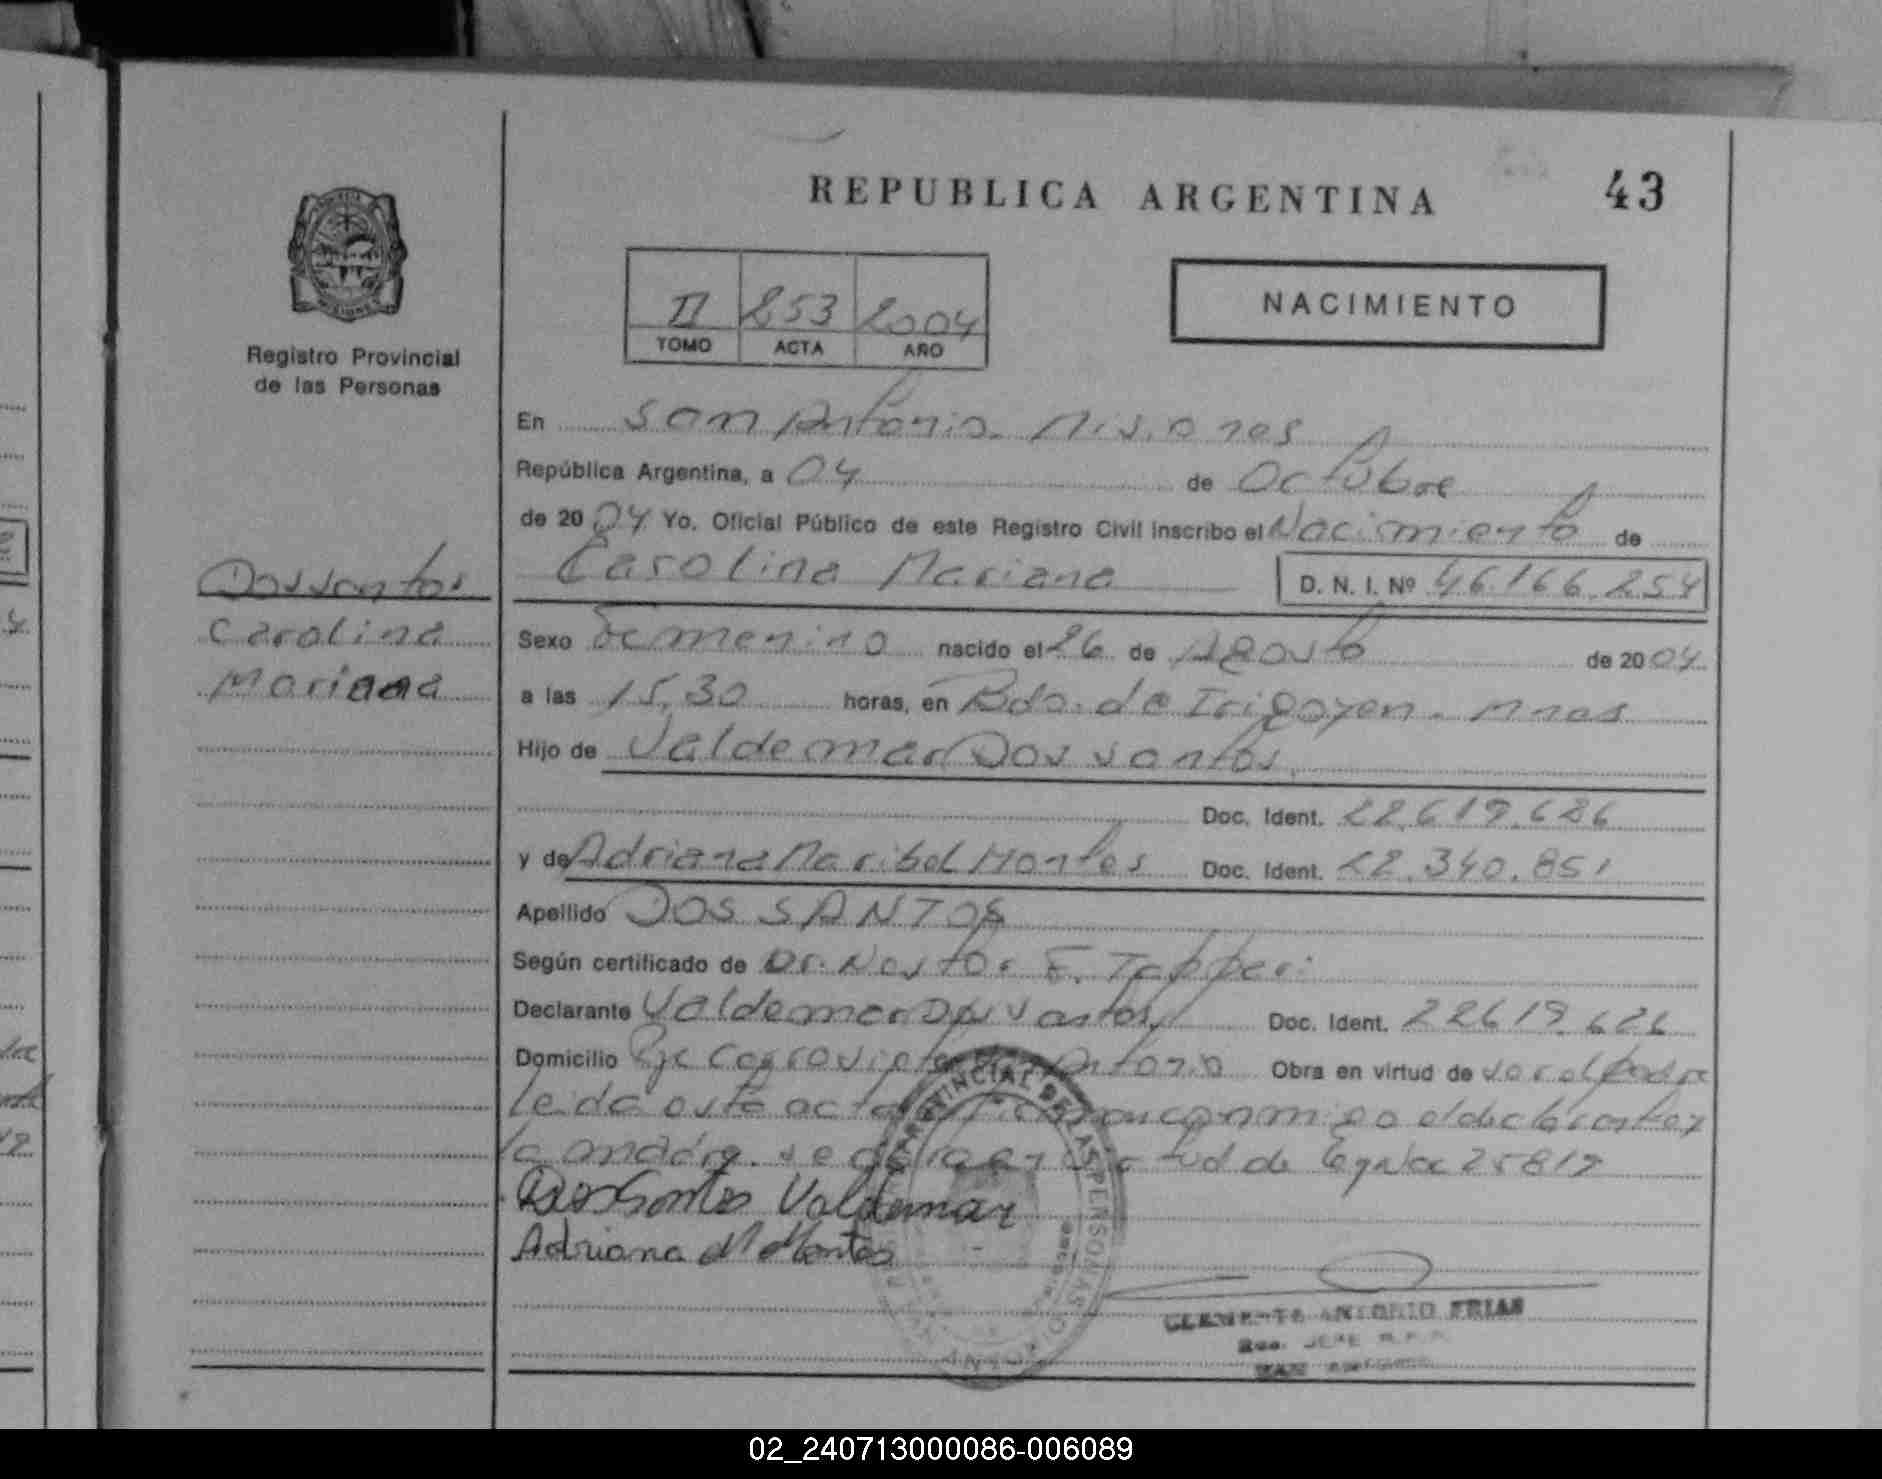 REPUBLICA ARGENTINA 43
II 253 2004
TOMO ACTA AÑO
NACIMIENTO
Registro Provincial
de las Personas
Dos santos
Carolina
Mariana
En San Antonio Misiones
República Argentina, a 04 de Octubre
de 2004 Yo, Oficial Público de este Registro Civil inscribo el Nacimiento de
Carolina Mariana D. N. I. Nº 46.166.254
Sexo Femenino nacido el 26 de Agosto de 2004
a las 15,30 horas, en Bdo. de Irigoyen - Mnes
Hijo de Valdemar Dos santos
Doc. Ident. 22.619.626
y de Adriana Maribel Montes Doc. Ident. 22.340.851
Apellido DOS SANTOS
Según certificado de Dr. Nestor E. Tapperi
Declarante Valdemar Dos santos Doc. Ident. 22619.626
Domicilio Antonio Obra en virtud de
leida esta acta conmigo el declarante y
la madre. virtud de Ley Nac 25819
Dos Santos Valdemar
Adriana M Montes
PROVINCIAL DE LAS PERSONAS
CLEMENTE ANTONIO FRIAS
02_240713000086-006089